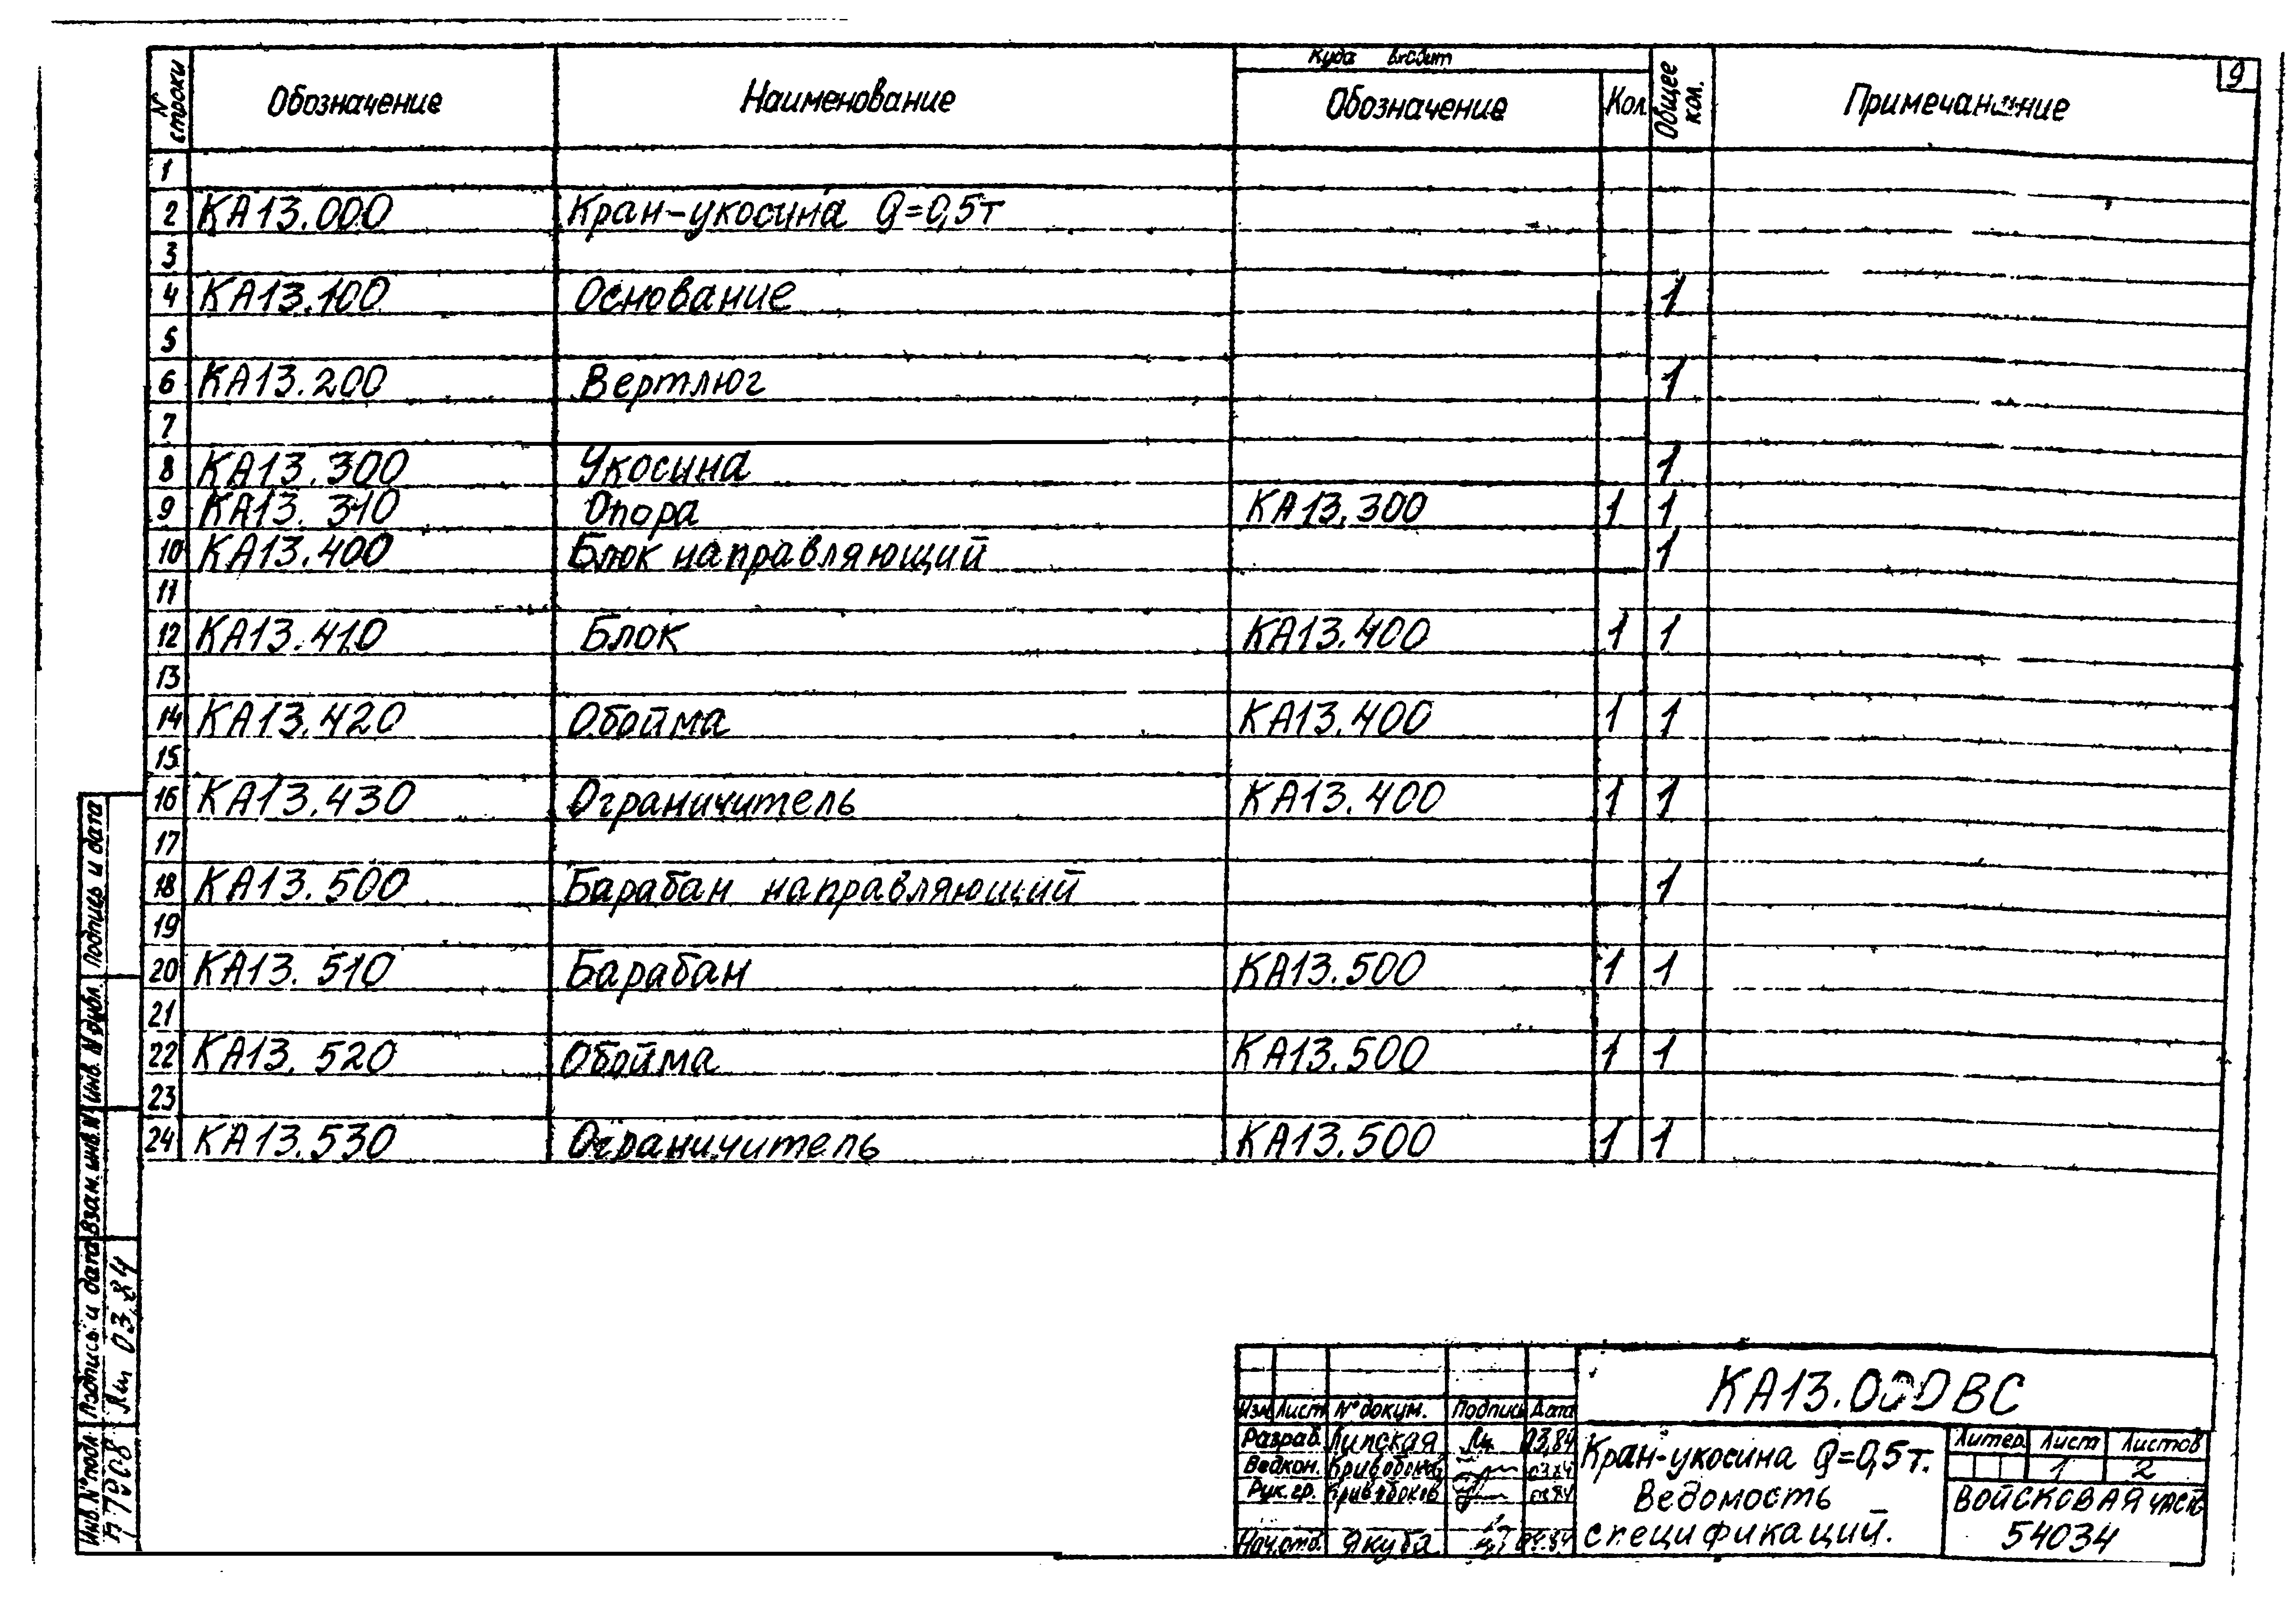 9
№ строки Обозначение Наименование Куда входит Общее кол. Примечание
Обозначение Кол.
1
2 КА13.000 Кран-укосина Q=0,5т
3
4 КА13.100 Основание 1
5
6 КА13.200 Вертлюг 1
7
8 КА13.300 Укосина 1
9 КА13.310 Опора КА13.300 1 1
10 КА13.400 Блок направляющий 1
11
12 КА13.410 Блок КА13.400 1 1
13
14 КА13.420 Обойма КА13.400 1 1
15
16 КА13.430 Ограничитель КА13.400 1 1
17
18 КА13.500 Барабан направляющий 1
19
20 КА13.510 Барабан КА13.500 1 1
21
22 КА13.520 Обойма КА13.500 1 1
23
24 КА13.530 Ограничитель КА13.500 1 1
Подпись и дата
Инв. № дубл.
Взам. инв. №
Подпись и дата 03.84
Инв. № подл.
КА13.000ВС
Изм Лист № докум. Подпись Дата
Разраб. Липская 03.84
Ведкон. Кривобоков 03.84
Рук. гр. Кривобоков 03.84
Нач. отд. Якуба
Кран-укосина Q=0,5т.
Ведомость
спецификаций.
Литер. Лист Листов
1 2
ВОЙСКОВАЯ ЧАСТЬ
54034